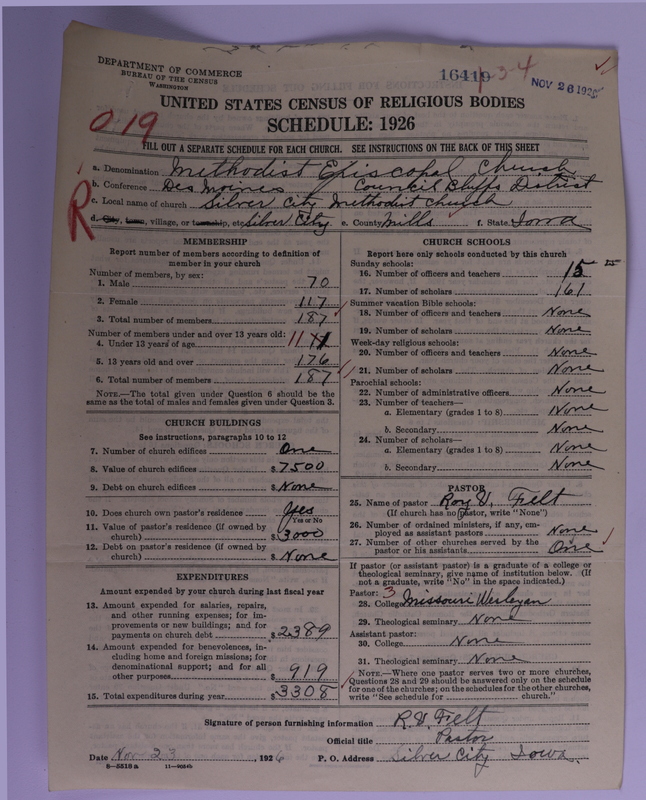 DEPARTMENT OF COMMERCE
BUREAU OF THE CENSUS
WASHINGTON
16419
1-34
NOV 26 1926
UNITED STATES CENSUS OF RELIGIOUS BODIES
SCHEDULE: 1926
019
FILL OUT A SEPARATE SCHEDULE FOR EACH CHURCH. SEE INSTRUCTIONS ON THE BACK OF THIS SHEET
R
a. Denomination Methodist Episcopal Church
b. Conference Des Moines Council Bluffs District
c. Local name of church Silver City Methodist Church
d. City, town, village, or township, etc Silver City e. County Mills f. State Iowa
MEMBERSHIP
Report number of members according to definition of
member in your church
Number of members, by sex:
1. Male 70
2. Female 117
3. Total number of members 187
Number of members under and over 13 years old:
4. Under 13 years of age 11
5. 13 years old and over 176
6. Total number of members 187
NOTE.—The total given under Question 6 should be the
same as the total of males and females given under Question 3.
CHURCH BUILDINGS
See instructions, paragraphs 10 to 12
7. Number of church edifices One
8. Value of church edifices $7500
9. Debt on church edifices $None
10. Does church own pastor's residence Yes
Yes or No
11. Value of pastor's residence (if owned by
church) $3000
12. Debt on pastor's residence (if owned by
church) $None
EXPENDITURES
Amount expended by your church during last fiscal year
13. Amount expended for salaries, repairs,
and other running expenses; for im-
provements or new buildings; and for
payments on church debt $2389
14. Amount expended for benevolences, in-
cluding home and foreign missions; for
denominational support; and for all
other purposes $919
15. Total expenditures during year $3308
CHURCH SCHOOLS
Report here only schools conducted by this church
Sunday schools:
16. Number of officers and teachers 15 15
17. Number of scholars 161
Summer vacation Bible schools:
18. Number of officers and teachers None
19. Number of scholars None
Week-day religious schools:
20. Number of officers and teachers None
21. Number of scholars None
Parochial schools:
22. Number of administrative officers None
23. Number of teachers—
a. Elementary (grades 1 to 8) None
b. Secondary None
24. Number of scholars—
a. Elementary (grades 1 to 8) None
b. Secondary None
PASTOR
25. Name of pastor Roy V. Felt
(If church has no pastor, write "None")
26. Number of ordained ministers, if any, em-
ployed as assistant pastors None
27. Number of other churches served by the
pastor or his assistants One
If pastor (or assistant pastor) is a graduate of a college or
theological seminary, give name of institution below. (If
not a graduate, write "No" in the space indicated.)
Pastor: 3
28. College Missouri Wesleyan
29. Theological seminary None
Assistant pastor:
30. College None
31. Theological seminary None
NOTE.—Where one pastor serves two or more churches,
Questions 28 and 29 should be answered only on the schedule
for one of the churches; on the schedules for the other churches,
write "See schedule for church."
Signature of person furnishing information R.V. Felt
Official title Pastor
Date Nov 23, 1926 P. O. Address Silver City Iowa.
8-5518a 11-9054b